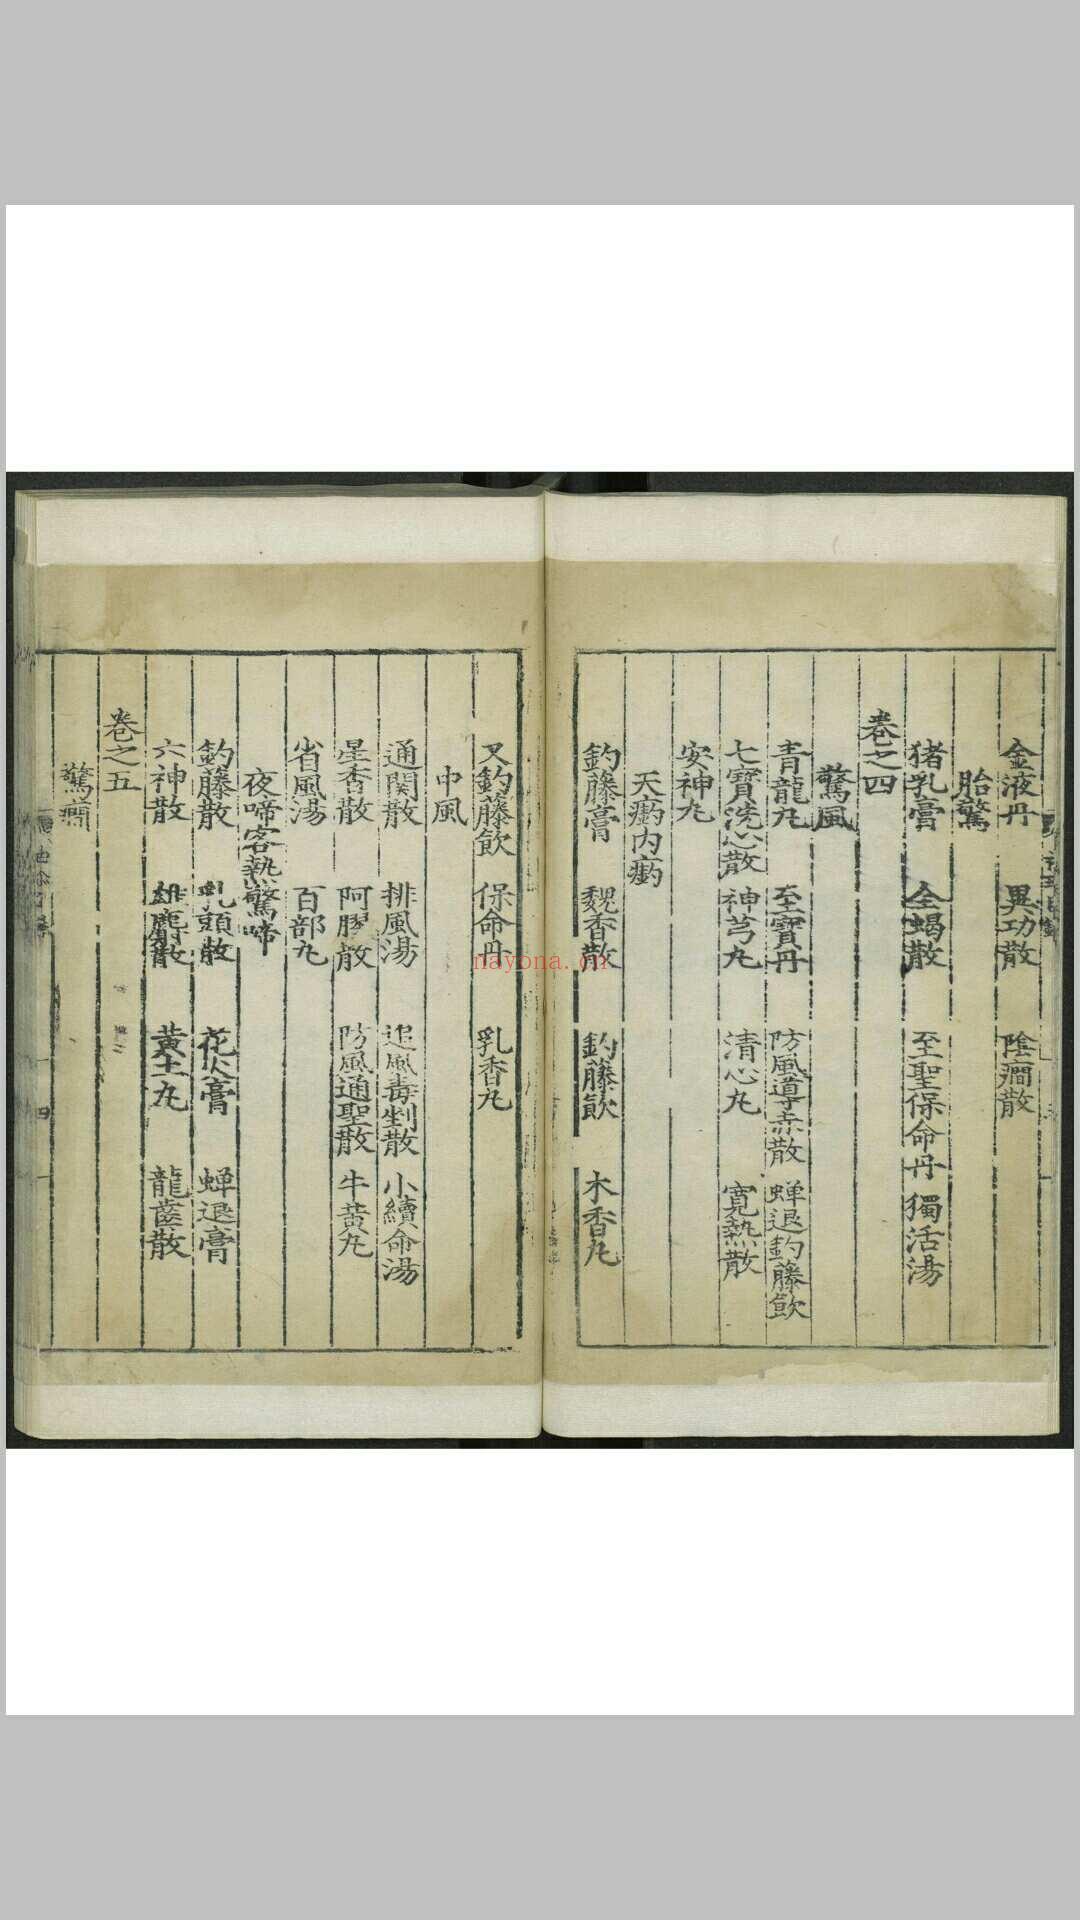 金液丹 異功散 陰癎散
胎驚
猪乳膏 全蝎散 至聖保命丹 獨活湯
卷之四
驚風
青龍丸 至寶丹 防風導赤散 蟬退釣藤飲
七寶洗心散 神芎丸 清心丸 寬熱散
安神丸
天瘹內瘹
釣藤膏 魏香散 釣藤飲 木香丸
又釣藤飲 保命丹 乳香丸
中風
通関散 排風湯 追風毒剉散 小續命湯
星香散 阿膠散 防風通聖散 牛黃丸
省風湯 百部丸
夜啼客熱驚啼
釣藤散 乳頭散 花火膏 蟬退膏
六神散 雄麝散 黃土丸 龍齒散
卷之五
驚癎
nayona.cn